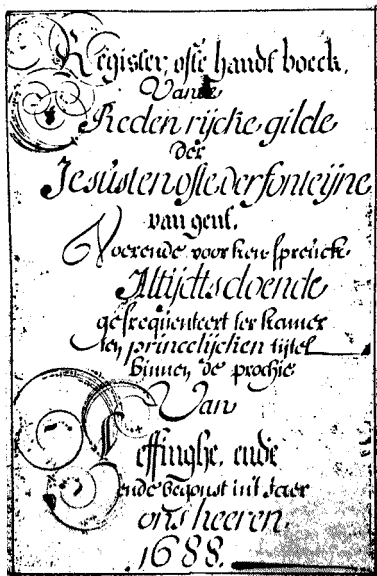 Register, ofte handt boeck.
Vande
Reden rijcke gilde
der
Jesùsten ofte der fonteijne
van gent.
Voerende voor ken spreùck
Altijdts doende
gefrequenteert ter kamer
ten princelijcken tijtel
binnen de prochie
Van
Leffinghe. ende
ende begonst int Jaer
ons heeren.
.1688.